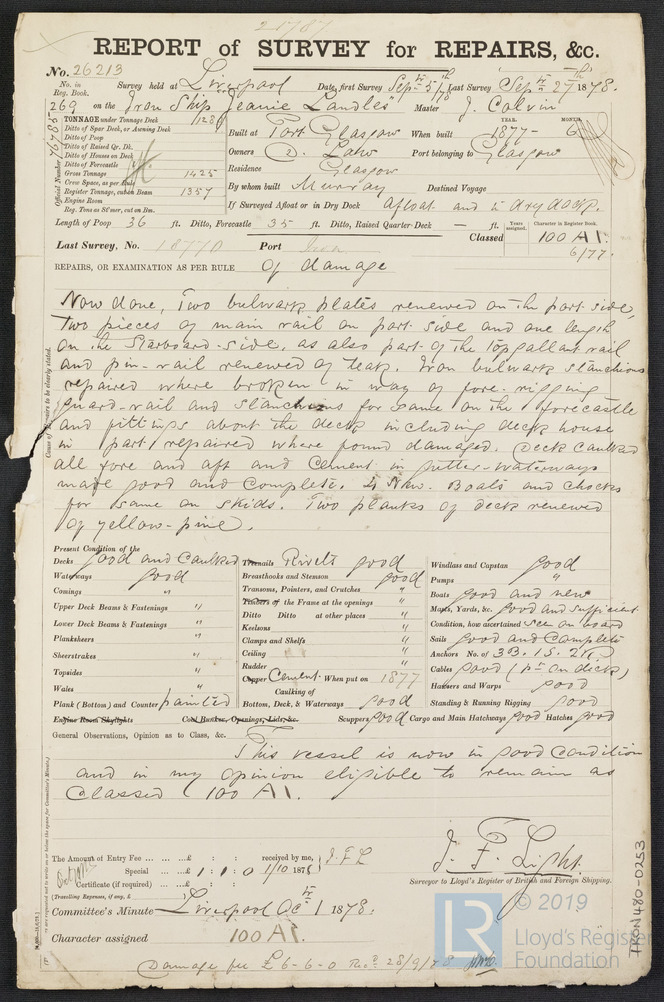 21787
REPORT of SURVEY for REPAIRS, &c.
No. 26213
No. in Reg. Book. Survey held at Liverpool Date, first Survey Septr 5th/78 Last Survey Septr 27th 1878.
269 on the Iron Ship "Jeanie Landles" Master J. Colvin
TONNAGE under Tonnage Deck 1286
Ditto of Spar Deck, or Awning Deck
Ditto of Poop
Ditto of Raised Qr. Dk.
Ditto of Houses on Deck
Ditto of Forecastle
Gross Tonnage 1425
Crew Space, as per Rule
Register Tonnage, cut on Beam 1357
Engine Room
Reg. Tons as St'mer, cut on Bm.
Official Number 76785
YEAR. MONTH.
Built at Port Glasgow When built 1877 - 6
Owners Law Port belonging to Glasgow
Residence Glasgow
By whom built Murray Destined Voyage
If Surveyed Afloat or in Dry Dock afloat and in dry dock.
Length of Poop 36 ft. Ditto, Forecastle 35 ft. Ditto, Raised Quarter-Deck — ft.
Years assigned. Character in Register Book.
Classed 100 A1. 6/77.
Last Survey, No. 18770 Port Iron
REPAIRS, OR EXAMINATION AS PER RULE Of damage
Cause of Repairs to be clearly stated.
Now done, Two bulwark plates renewed on the port side,
Two pieces of main rail on port side and one length
on the Starboard-side, as also part of the Topgallant rail
and pin-rail renewed of teak. Iron bulwark stanchions
repaired where broken in way of fore-rigging
guard-rail and stanchions for same on the forecastle
and fittings about the deck including deck house
in part, repaired where found damaged. Deck caulked
all fore and aft and cement in gutter-waterways
made good and complete. 4 New. Boats and chocks
for same on skids. Two planks of deck renewed
of yellow-pine.
Present Condition of the
Decks good and caulked
Waterways good
Comings "
Upper Deck Beams & Fastenings "
Lower Deck Beams & Fastenings "
Planksheers "
Sheerstrakes "
Topsides "
Wales "
Plank (Bottom) and Counter painted
Engine Room Skylights Coal Bunker, Openings, Lids, &c.
Treenails Rivets good
Breasthooks and Stemson good
Transoms, Pointers, and Crutches "
Timbers of the Frame at the openings "
Ditto Ditto at other places "
Keelsons "
Clamps and Shelfs "
Ceiling "
Rudder "
Copper Cement. When put on 1877
Caulking of
Bottom, Deck, & Waterways good
Scuppers good Cargo and Main Hatchways good Hatches good
Windlass and Capstan good
Pumps "
Boats good and new
Masts, Yards, &c. good and sufficient
Condition, how ascertained See on board
Sails good and complete
Anchors No. of 3B. 1S. 2K.
Cables good (pt on deck)
Hawsers and Warps good
Standing & Running Rigging good
General Observations, Opinion as to Class, &c.
This vessel is now in good condition
and in my opinion eligible to remain as
Classed (100 A1.
The Amount of Entry Fee ... ... £ : : received by me, J.F.L
Special ... ... £ 1 : 1 : 0 1/10 1878
Certificate (if required) ... : :
(Travelling Expenses, if any, £ )
J. F. Light.
Surveyor to Lloyd's Register of British and Foreign Shipping.
Committee's Minute Liverpool Octr 1 1878.
Character assigned 100 A1.
Damage fee £6-6-0 Recd 28/9/78
IRON480-0253
© 2019
LR
Lloyd's Register
Foundation